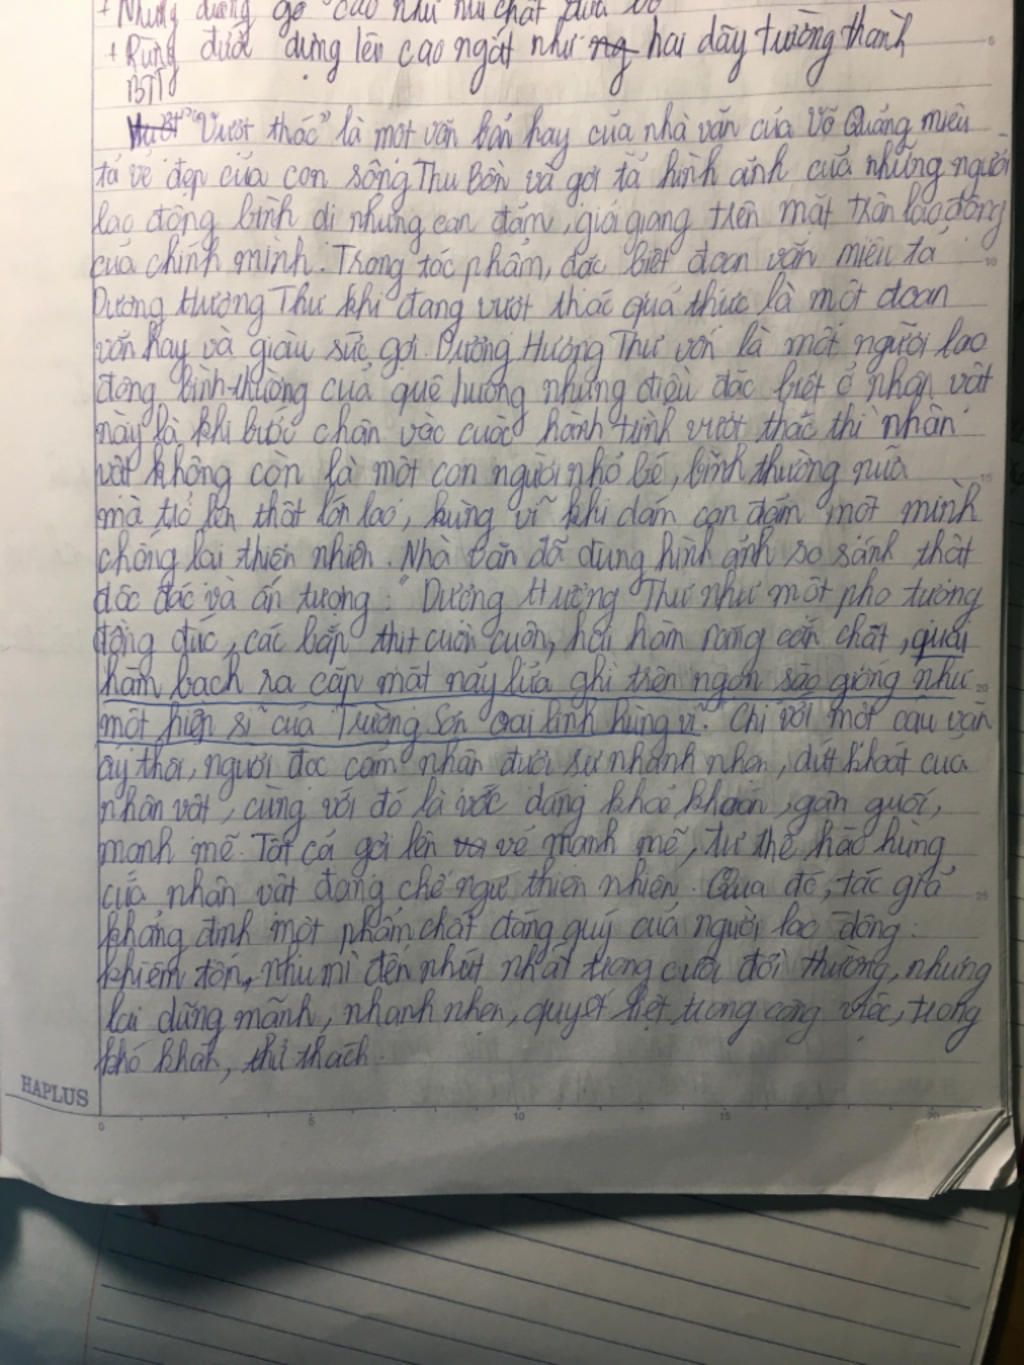 + Những đường gỗ cao như
+ Rừng đước dựng lên cao ngất như ng hai dãy trường thành
BTT
"Vượt thác" là một văn bản hay của nhà văn của Võ Quảng miêu
tả vẻ đẹp của con sông Thu Bồn và gợi tả hình ảnh của những người
lao động bình dị nhưng can đảm, giỏi giang trên mặt trận lao động
của chính mình. Trong tác phẩm, đặc biệt đoạn văn miêu tả
Dượng Hương Thư khi đang vượt thác quả thực là một đoạn
văn hay và giàu sức gợi. Dượng Hương Thư vốn là một người lao
động bình thường của quê hương nhưng điều đặc biệt ở nhân vật
này là khi bước chân vào cuộc hành trình vượt thác thì nhân
vật không còn là một con người nhỏ bé, bình thường nữa
mà trở lên thật lớn lao, hùng vĩ khi dám can đảm một mình
chống lại thiên nhiên. Nhà văn đã dùng hình ảnh so sánh thật
độc đáo và ấn tượng: "Dượng Hương Thư như một pho tượng
đồng đúc, các bắp thịt cuồn cuộn, hai hàm răng cắn chặt, quai
hàm bạch ra cặp mắt nảy lửa ghì trên ngọn sào giống như
một hiệp sĩ của Trường Sơn oai linh hùng vĩ". Chỉ với một câu văn
ấy thôi, người đọc cảm nhận được sự nhanh nhẹn, dứt khoát của
nhân vật, cùng với đó là vóc dáng khoẻ khoắn, gân guốc,
mạnh mẽ. Tất cả gợi lên vẻ mạnh mẽ, tư thế hào hùng
của nhân vật đang chế ngự thiên nhiên. Qua đó, tác giả
khẳng định một phẩm chất đáng quý của người lao động:
khiêm tốn, nhu mì đến nhút nhát trong cuộc đời thường, nhưng
lại dũng mãnh, nhanh nhẹn, quyết liệt trong công việc, trong
khó khăn, thử thách.
HAPLUS
0 5 10 15 20
5
10
15
20
25